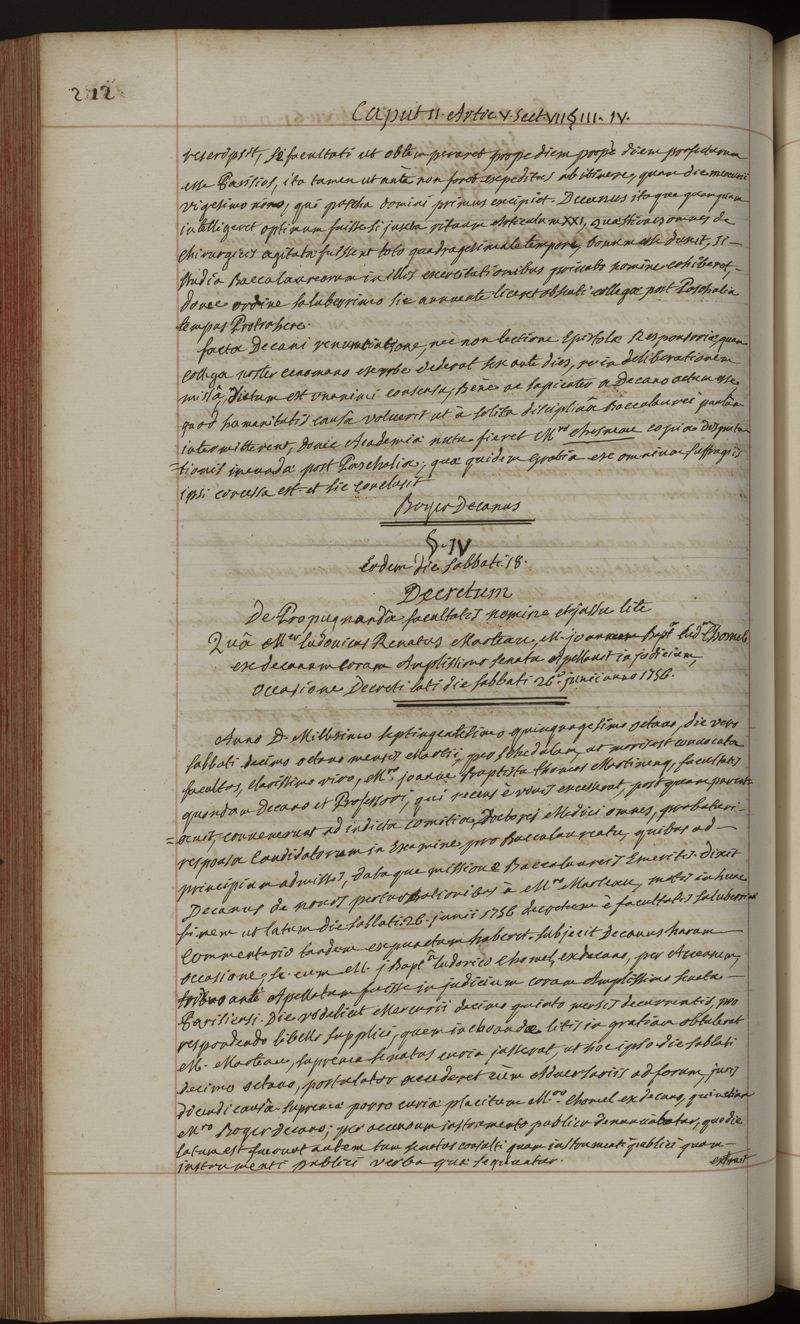 212
Caput II. Artic V. Sect VII § III. IV.
rescripsit, se facultati ut obtemperaret prope diem profecturum
esse Parisios, ita tamen ut ante non foret expeditus ab itinere, quam die mercurii
vigesimo nono, qui pascha domini primus excipiet. Decanus itaque quamquam
intelligeret optimum fuisse si juxta ritum Articulum XXI, quæstiones omnes de
chirurgicis agitatæ fuissent toto quadragesimale tempore, bonum esse duxit, si
studia Baccalaureorum in illis exercitationibus privato nomine cohiberet,
donec ordine saluberrimo sic annuente liceret absenti collegæ post Paschalia
tempus Protrahere.
facta Decani renuntiatione, nec non lectione Epistolæ Responsoriæ quam
collega noster cenomano ex urbe dederat sex ante dies, re in deliberationem
missâ, dictum est unanimi consensu, Bene ac sapienter a Decano actum esse
quod humanitatis causâ voluerit ut à solita disciplinâ Baccalaurei paulum
intermitterent, donec Academiæ nutu fieret Mro Chesneau copia disputa
=tionis ineundæ post Paschalia; quæ quidem gratia ex omnium suffragiis
ipsi concessa est et sic conclusit
Boyer Decanus
§. IV
Eodem die sabbati 18.
Decretum
De Propugnandâ facultatis nomine et jussu lite
Quâ Mer Ludovicus Renatus Marteau, M. joannem Bapt. Lud. Chomel
ex decanum coram Amplissimo senatu Apellavit in judicium,
occasione Decreti lati die sabbati 26. junii anno 1756.
Anno D. Millesimo septingentesimo quinquagesimo octavo, die vero
sabbati decimo octavo mensis Martii, per schedulam, ut moris est convocata
facultas, clarissimo viro, Mro joanne Baptista Thomas Martinenq, facultatis
quondam Decano et Professori, qui recens è vivis excesserat, postquam
convenerunt ad indicta comitia, Doctores Medici omnes, probaturi
responsa Candidatorum in Examine pro Baccalaureatu, quibus ad
principium admissis, dataque missione Baccalaureis Emeritis. Dixit
Decanus de novis perturbationibus à Mro Marteau, motis in hunc
finem ut latum die sabbati 26. junii 1756 decretum è facultatis saluberrimæ
Commentario tandem expunctum haberet. subjecit Decanus harum
occasione, se cum M. j Bapt. Ludovico Chomel exdecano, per Accensum,
tribus ante Apellatum fuisse in judicium coram Amplissimo senatu
Parisiensi. Die videlicet Mercurii decimo quinto mensis decurrentis, pro
respondendo libello supplici, quem inchoandæ litis in gratiam obtulerat
M. Marteau, suprema senatus curia jusserat, ut hoc ipso die sabbati
decimo octavo, postulator accederet cum Adversariis ad forum, juris
dicundi causâ. supremæ porro curiæ placitum Mro Chomel exdecano, quin etiam
Mro Boyer decano, per accensum instrumento publico denunciabatur, quo die
latum est fuerunt autem tum senatus consulti quam instrumenti publici quam
instrumenti publici verba quæ sequuntur.
extrait